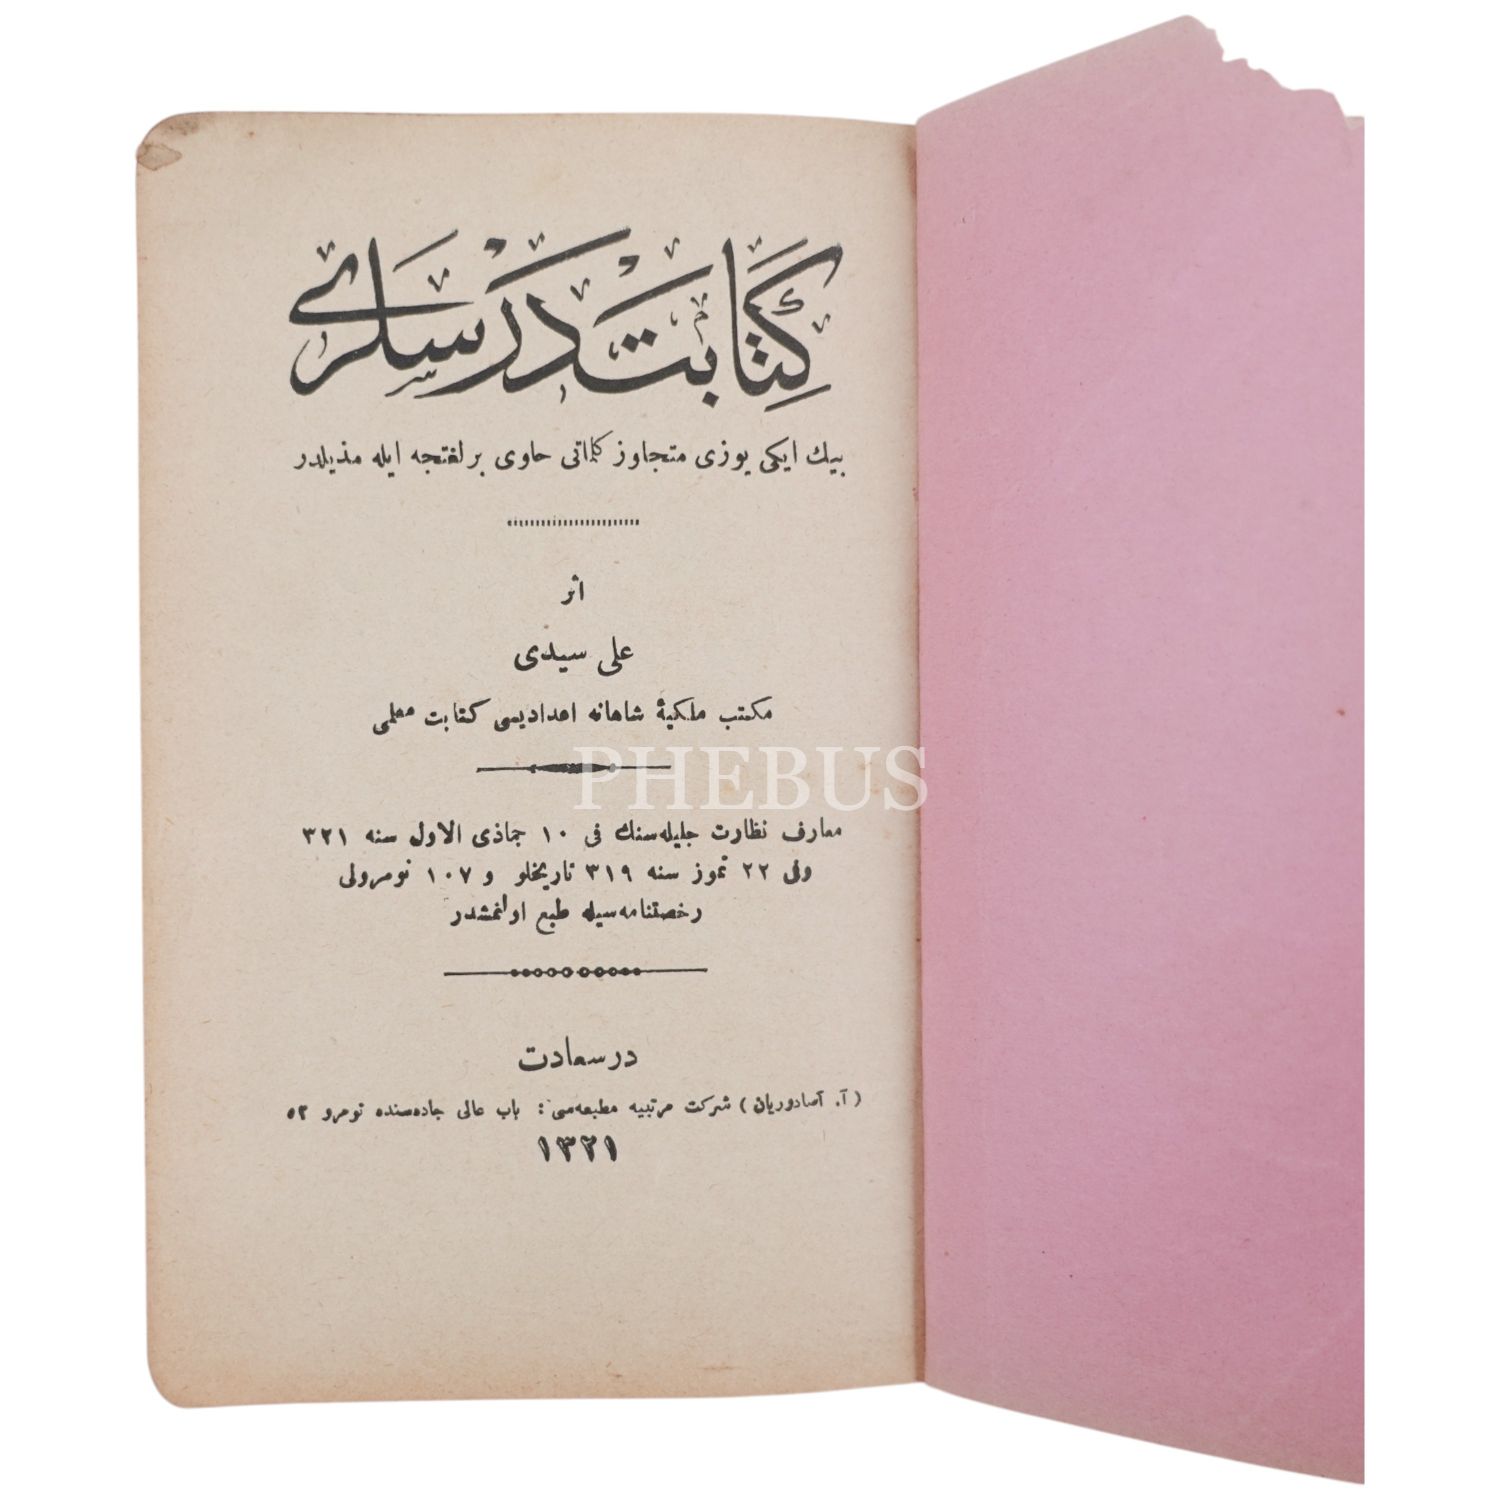 كتابت درسلری
بيك ايكی يوزی متجاوز كلماتی حاوی بر لغتجه ايله مذيلدر
اثر
علی سيدی
مكتب ملكيهٔ شاهانه اعداديسی كتابت معلمی
معارف نظارت جليله‌سنك فی ١٠ جماذی الاول سنه ٣٢١
وفی ٢٢ تموز سنه ٣١٩ تاريخلو و ١٠٧ نومرولی
رخصتنامه‌سيله طبع اولنمشدر
در سعادت
(آ. آصادوريان) شركت مرتبيه مطبعه‌سی: باب عالی جاده‌سنده نومرو ٥٢
١٣٢١
PHEBUS